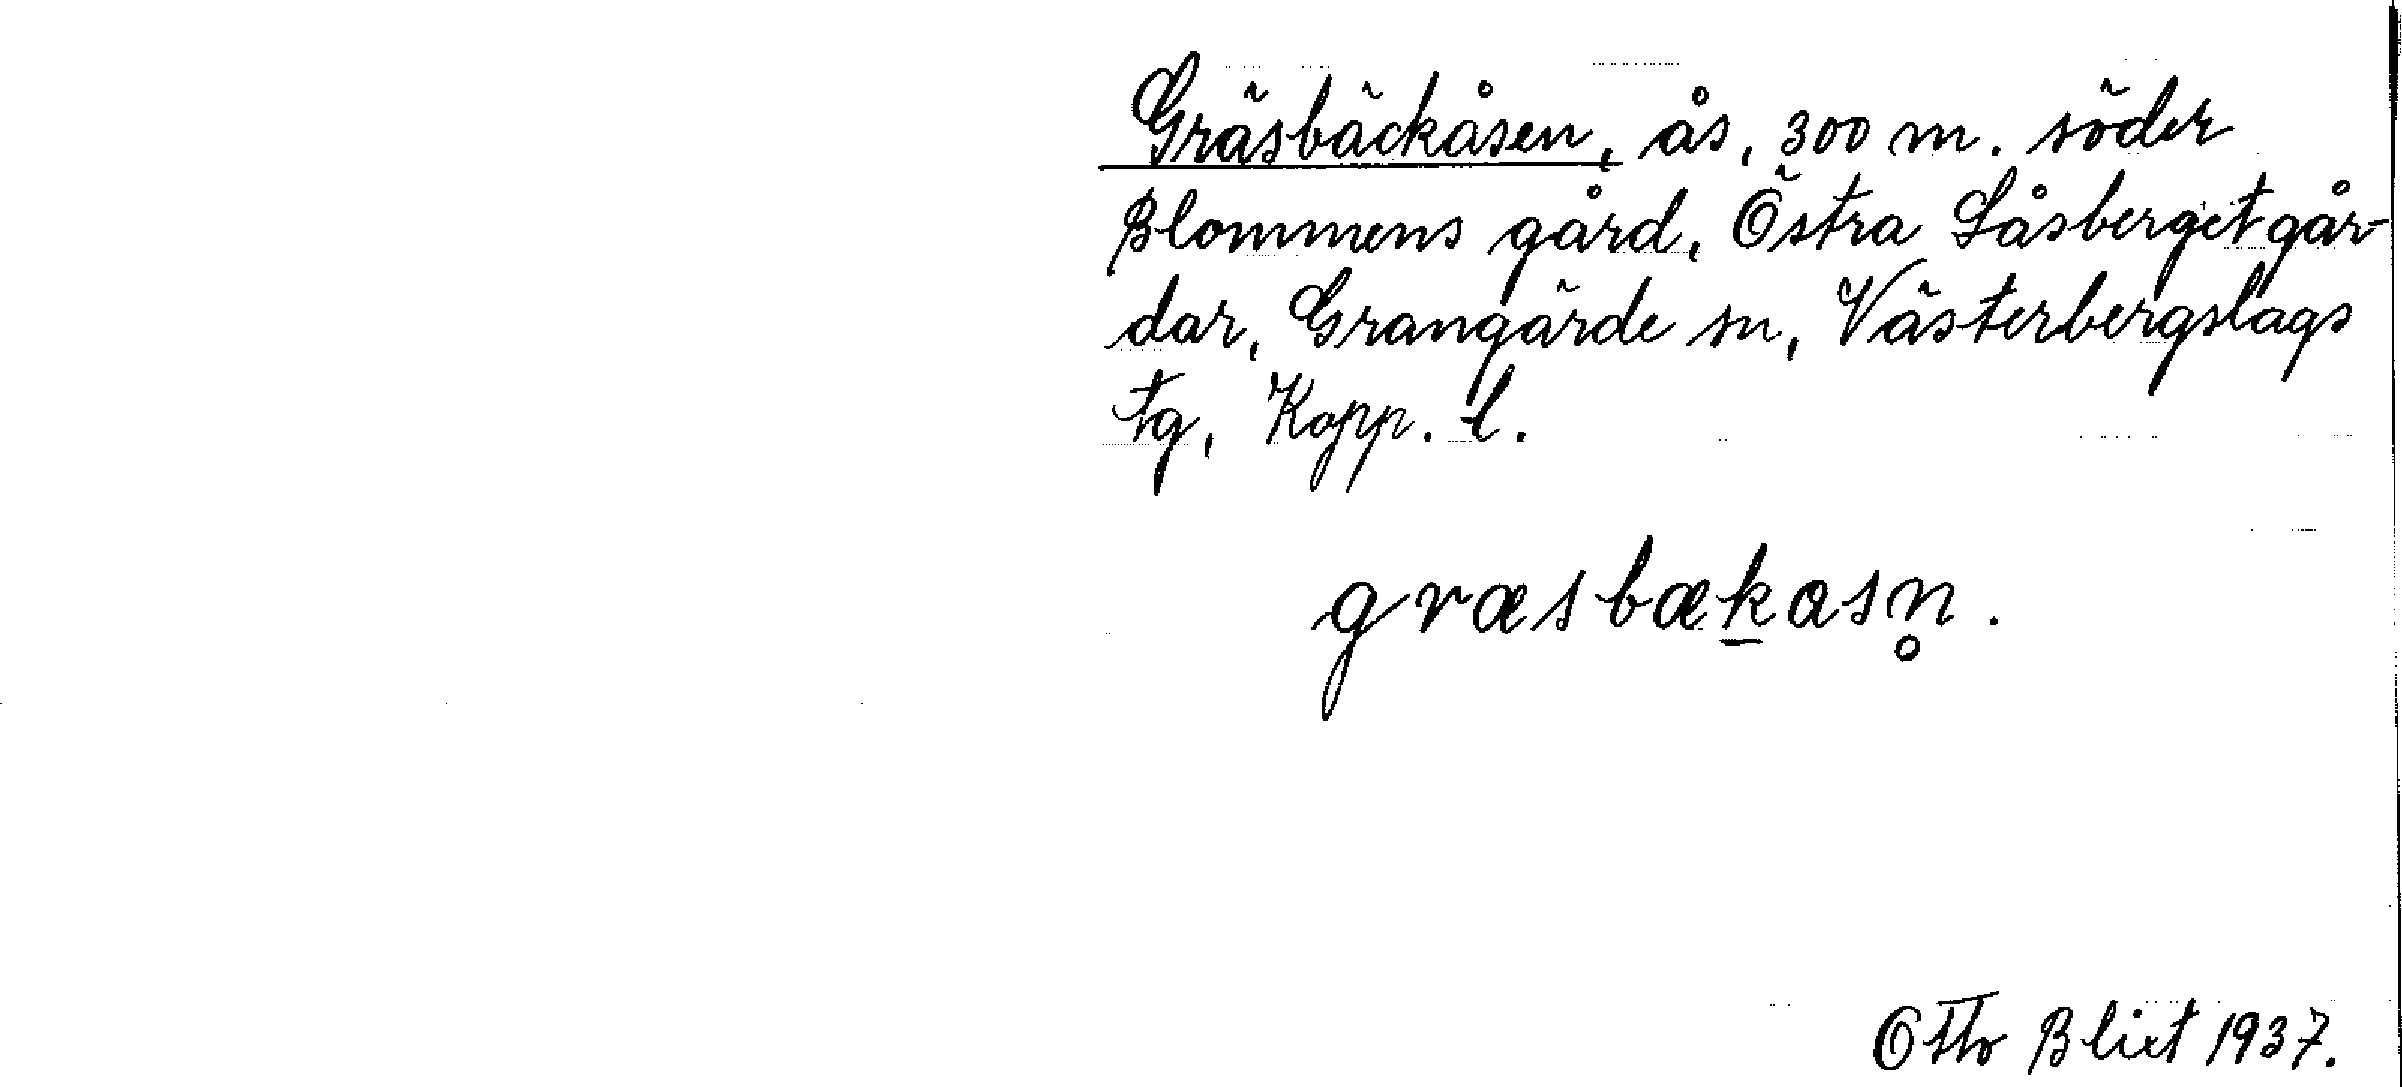 Gräsbäckåsen, ås, 300 m. söder
Blommens gård, Östra Låsberget går-
dar, Grangärde sn, Västerbergslags
tg, Kopp. l.
græsbæk̲asn̥.
Otto Blixt 1937.